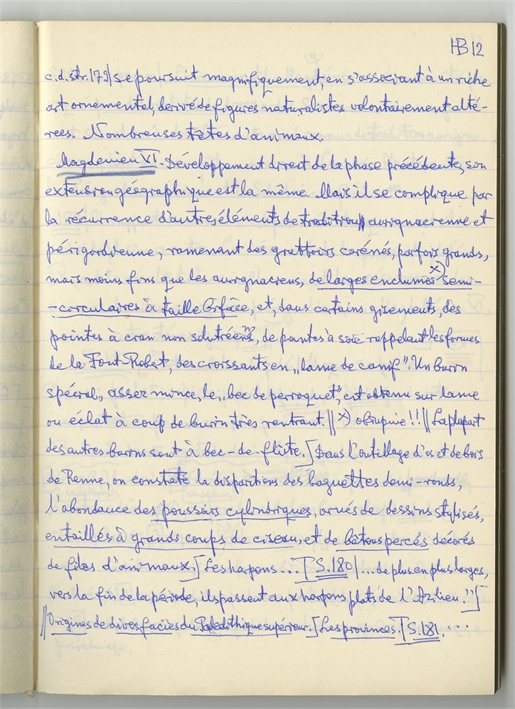 HB 12
c.d.str. 179/ se poursuit magnifiquement, en s'associant à un riche
art ornemental, derivé de figures naturalistes volontairement alté-
rees. Nombreuses têtes d'animaux.
Magdenien VI. Développement direct de la phase précédente, son
extension géographique est la même. Mais il se complique par
la récurrence d'autres éléments de tradition aurignacienne et
périgordienne, ramenant des grattoirs carénés, parfois grands,
mais moins fins que les aurignaciens, de larges enclumes x) semi-
-circulaires à taille biface, et, dans certains gisements, des
pointes à cran non solutréens, de pointes à soie rappelant les formes
de la Font-Robert, des croissants en „lame de canif". Un burin
spécial, assez mince, le „bec de perroquet", est obtenu sur lame
ou éclat à coup de burin très rentrant. || x) !! || La plupart
des autres burins sont à bec-de-flûte.] Dans l'outillage d'os et de bois
de Renne, on constate la disparition des baguettes demi-ronds,
l'abondance des poussoirs cylindriques, ornés de dessins stylisés,
entaillés à grands coups de ciseau, et de bâtons percés décorés
de files d'animaux.] Les harpons ... [S. 180/ ... de plus en plus larges,
vers la fin de la période, ils passent aux harpons plats de l'Azilien !!]
|| Origines de divers faciès du Paléolithique supérieur. [Les provinces. [S. 181. ...